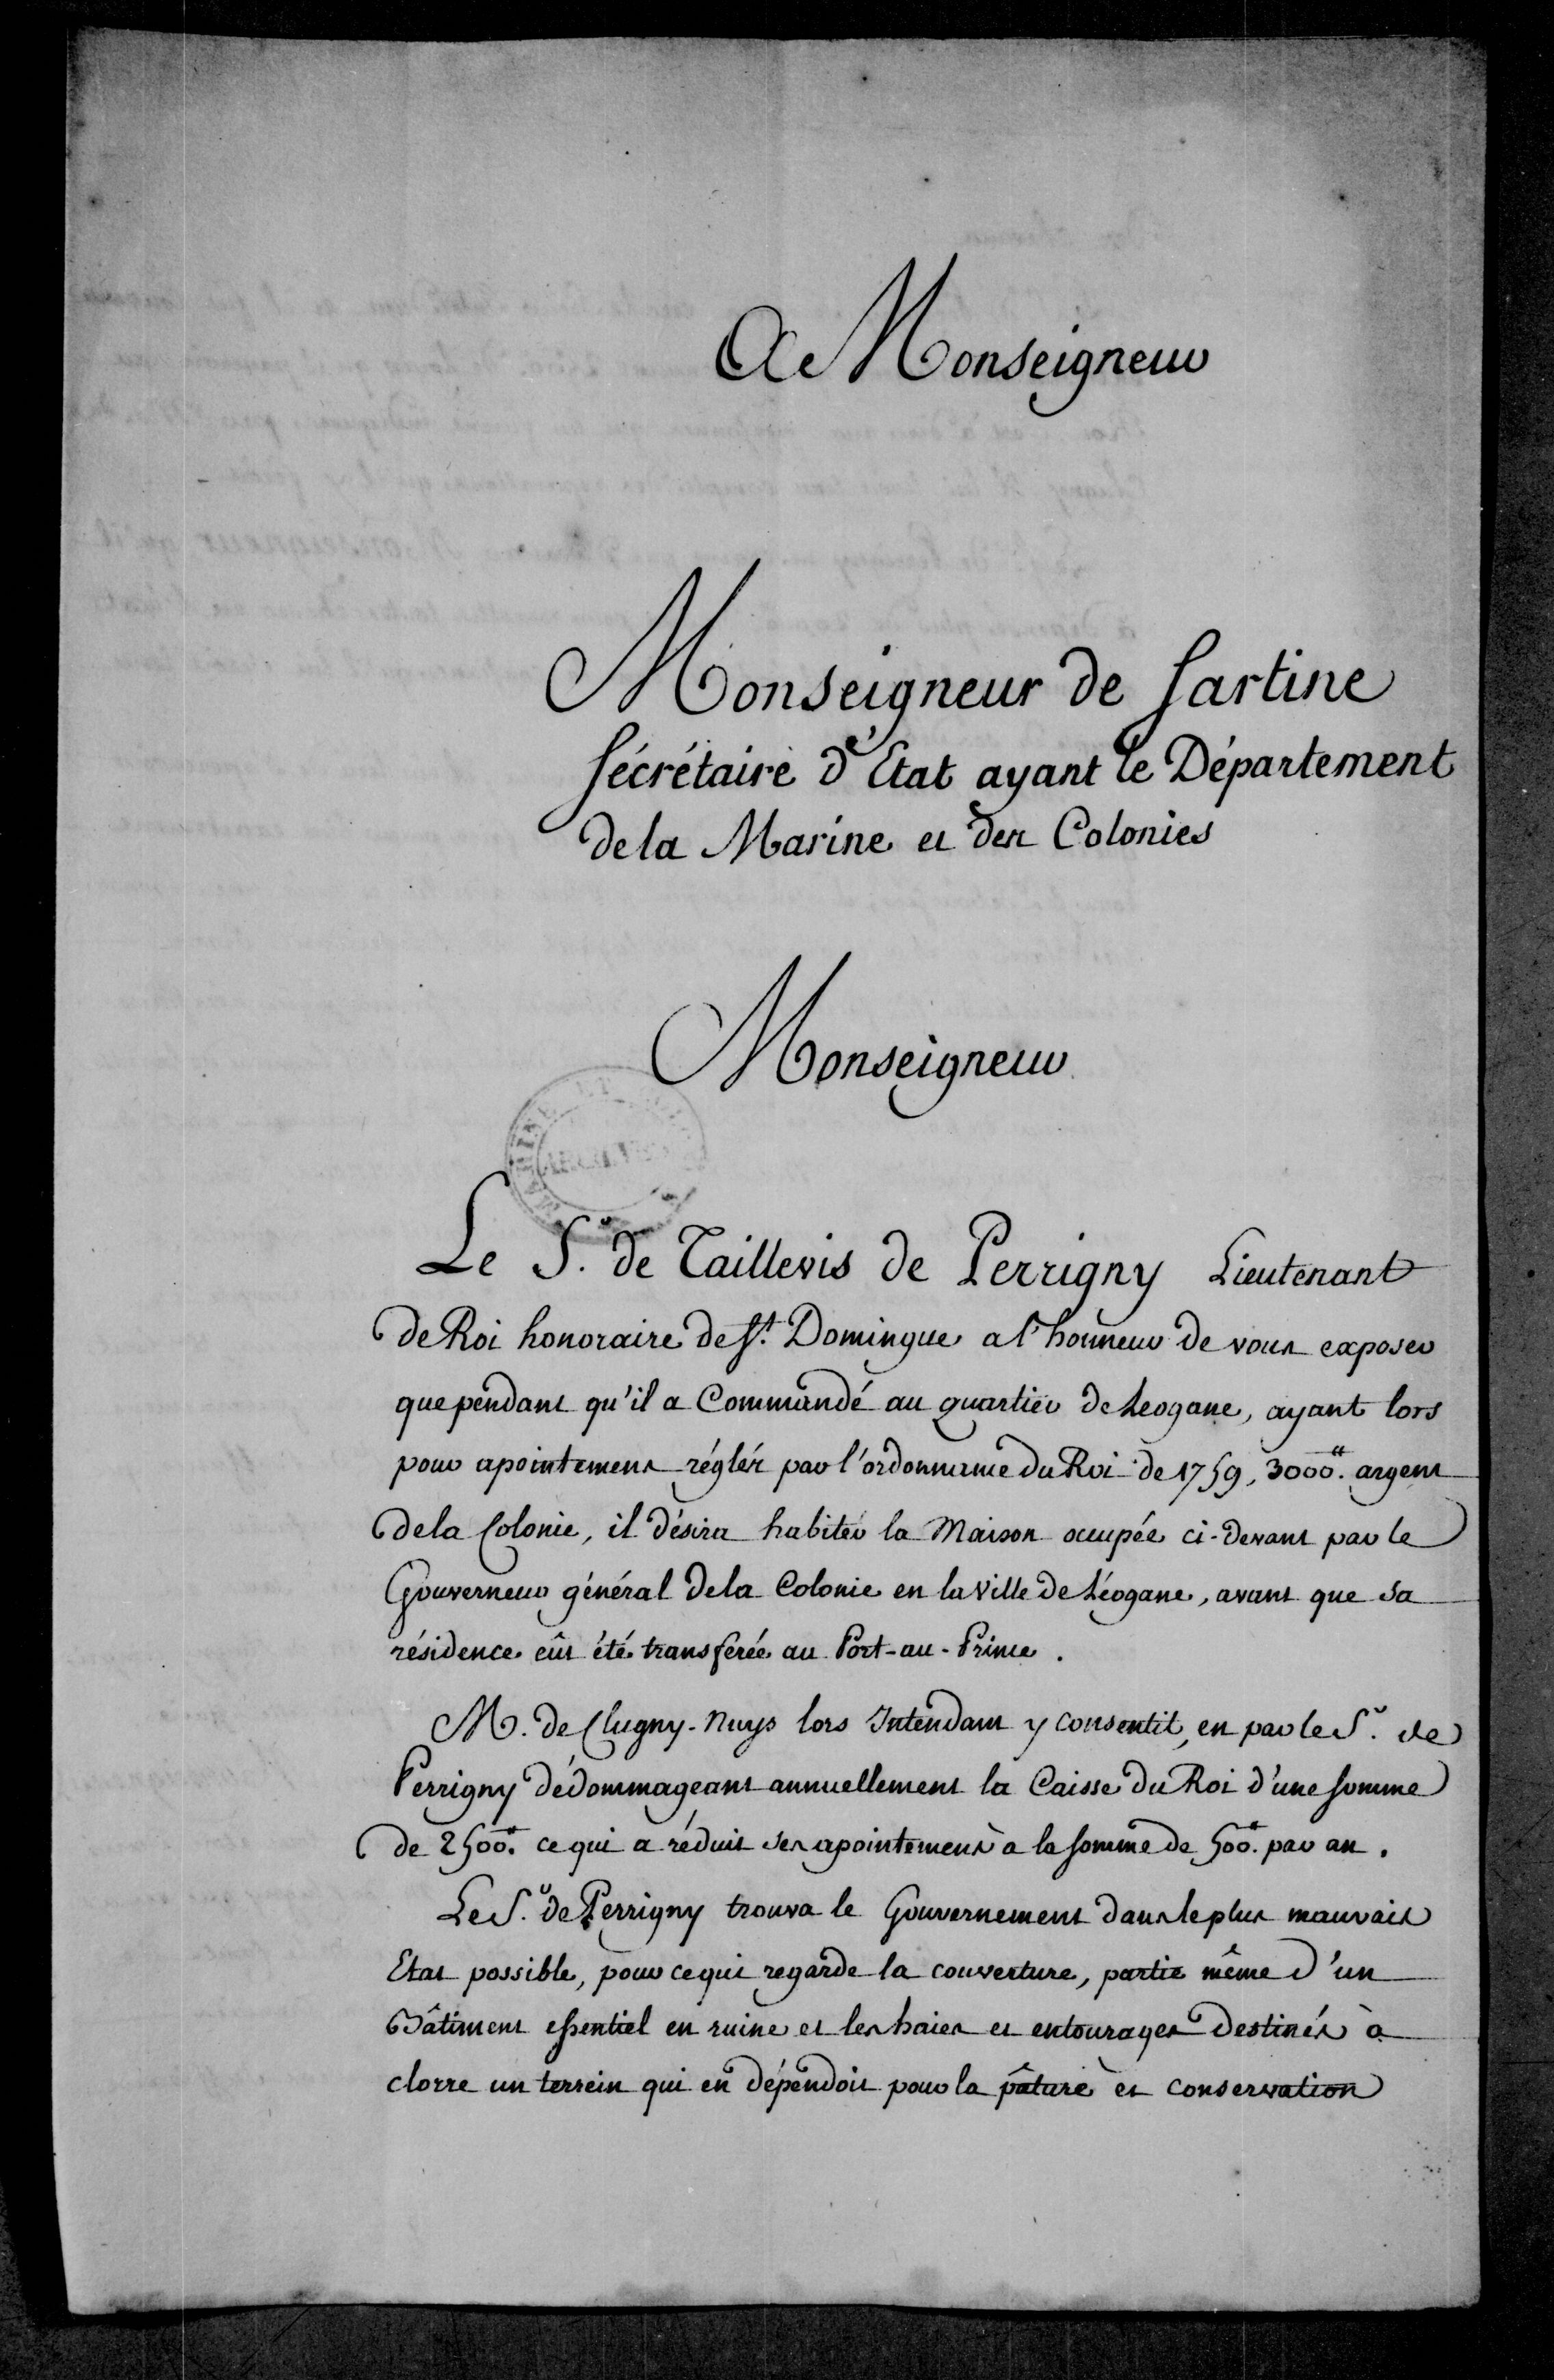 A Monseigneur
Monseigneur de Sartine
Sécrétaire d'Etat ayant le Département
de la Marine et des Colonies
Monseigneur
Le Sr. de Taillevis de Perrigny Lieutenant
de Roi honoraire de St. Domingue a l'honneur de vous exposer
que pendant qu'il a Commandé au quartier de Leogane, ayant lors
pour apointemens réglés par l'ordonnance du Roi de 1759, 3000.₶ argent
de la Colonie, il désira habiter la Maison occupée ci-devant par le
Gouverneur général de la Colonie en la Ville de Léogane, avant que sa
résidence eût été transferée au Port-au-Prince.
M. de Clugny-Nuys lors Intendant y consentit, en par le Sr. de
Perrigny dédommageant annuellement la Caisse du Roi d'une somme
de 2500.₶ ce qui a réduit ses apointemens à la somme de 500.₶ par an.
Le Sr. de Perrigny trouva le Gouvernement dans le plus mauvais
Etat possible, pour ce qui regarde la couverture, partie même d'un
Bâtiment essentiel en ruine et les haies et entourages destinés à
clorre un terrein qui en dépendoit pour la pâture et conservation
ARCHIVES